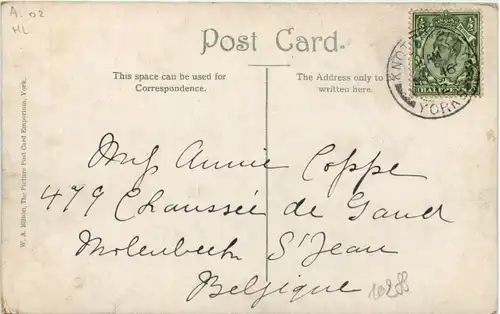 A. 02
HL
Post Card.
This space can be used for
Correspondence.
The Address only to be
written here.
W. A. Hilton, The Picture Post Card Emporium, York.
HALFPENNY
YORKS
Miss Annie Coppe
479 Chaussée de Gand
Molenbeek St Jean
Belgique
10288